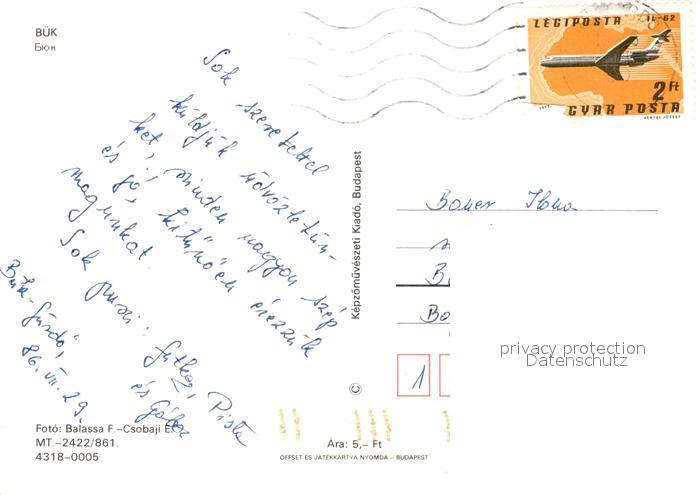 BÜK
Бюк
LÉGIPOSTA IL-62
2 Ft
MAGYAR POSTA
1977
VERTEL JÓZSEF
Sok szeretettel
küldjük üdvözle-tün-
ket, minden nagyon szép
és jó, kitűnően érezzük
magunkat.
Sok puszi:
Pista
és Gábor
Bük-fürdő,
86. VII. 29.
Képzőművészeti Kiadó, Budapest
©
Bauer Ilona
B
Bo
1
privacy protection
Datenschutz
Fotó: Balassa F.–Csobaji E.
MT.–2422/861.
4318–0005
Ára: 5,– Ft
OFFSET ÉS JÁTÉKKÁRTYA NYOMDA – BUDAPEST